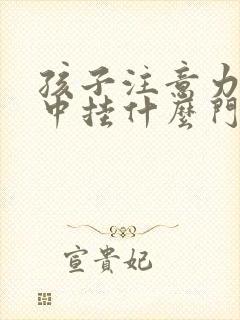 孩子注意力
中挂什麼門
宣貴妃